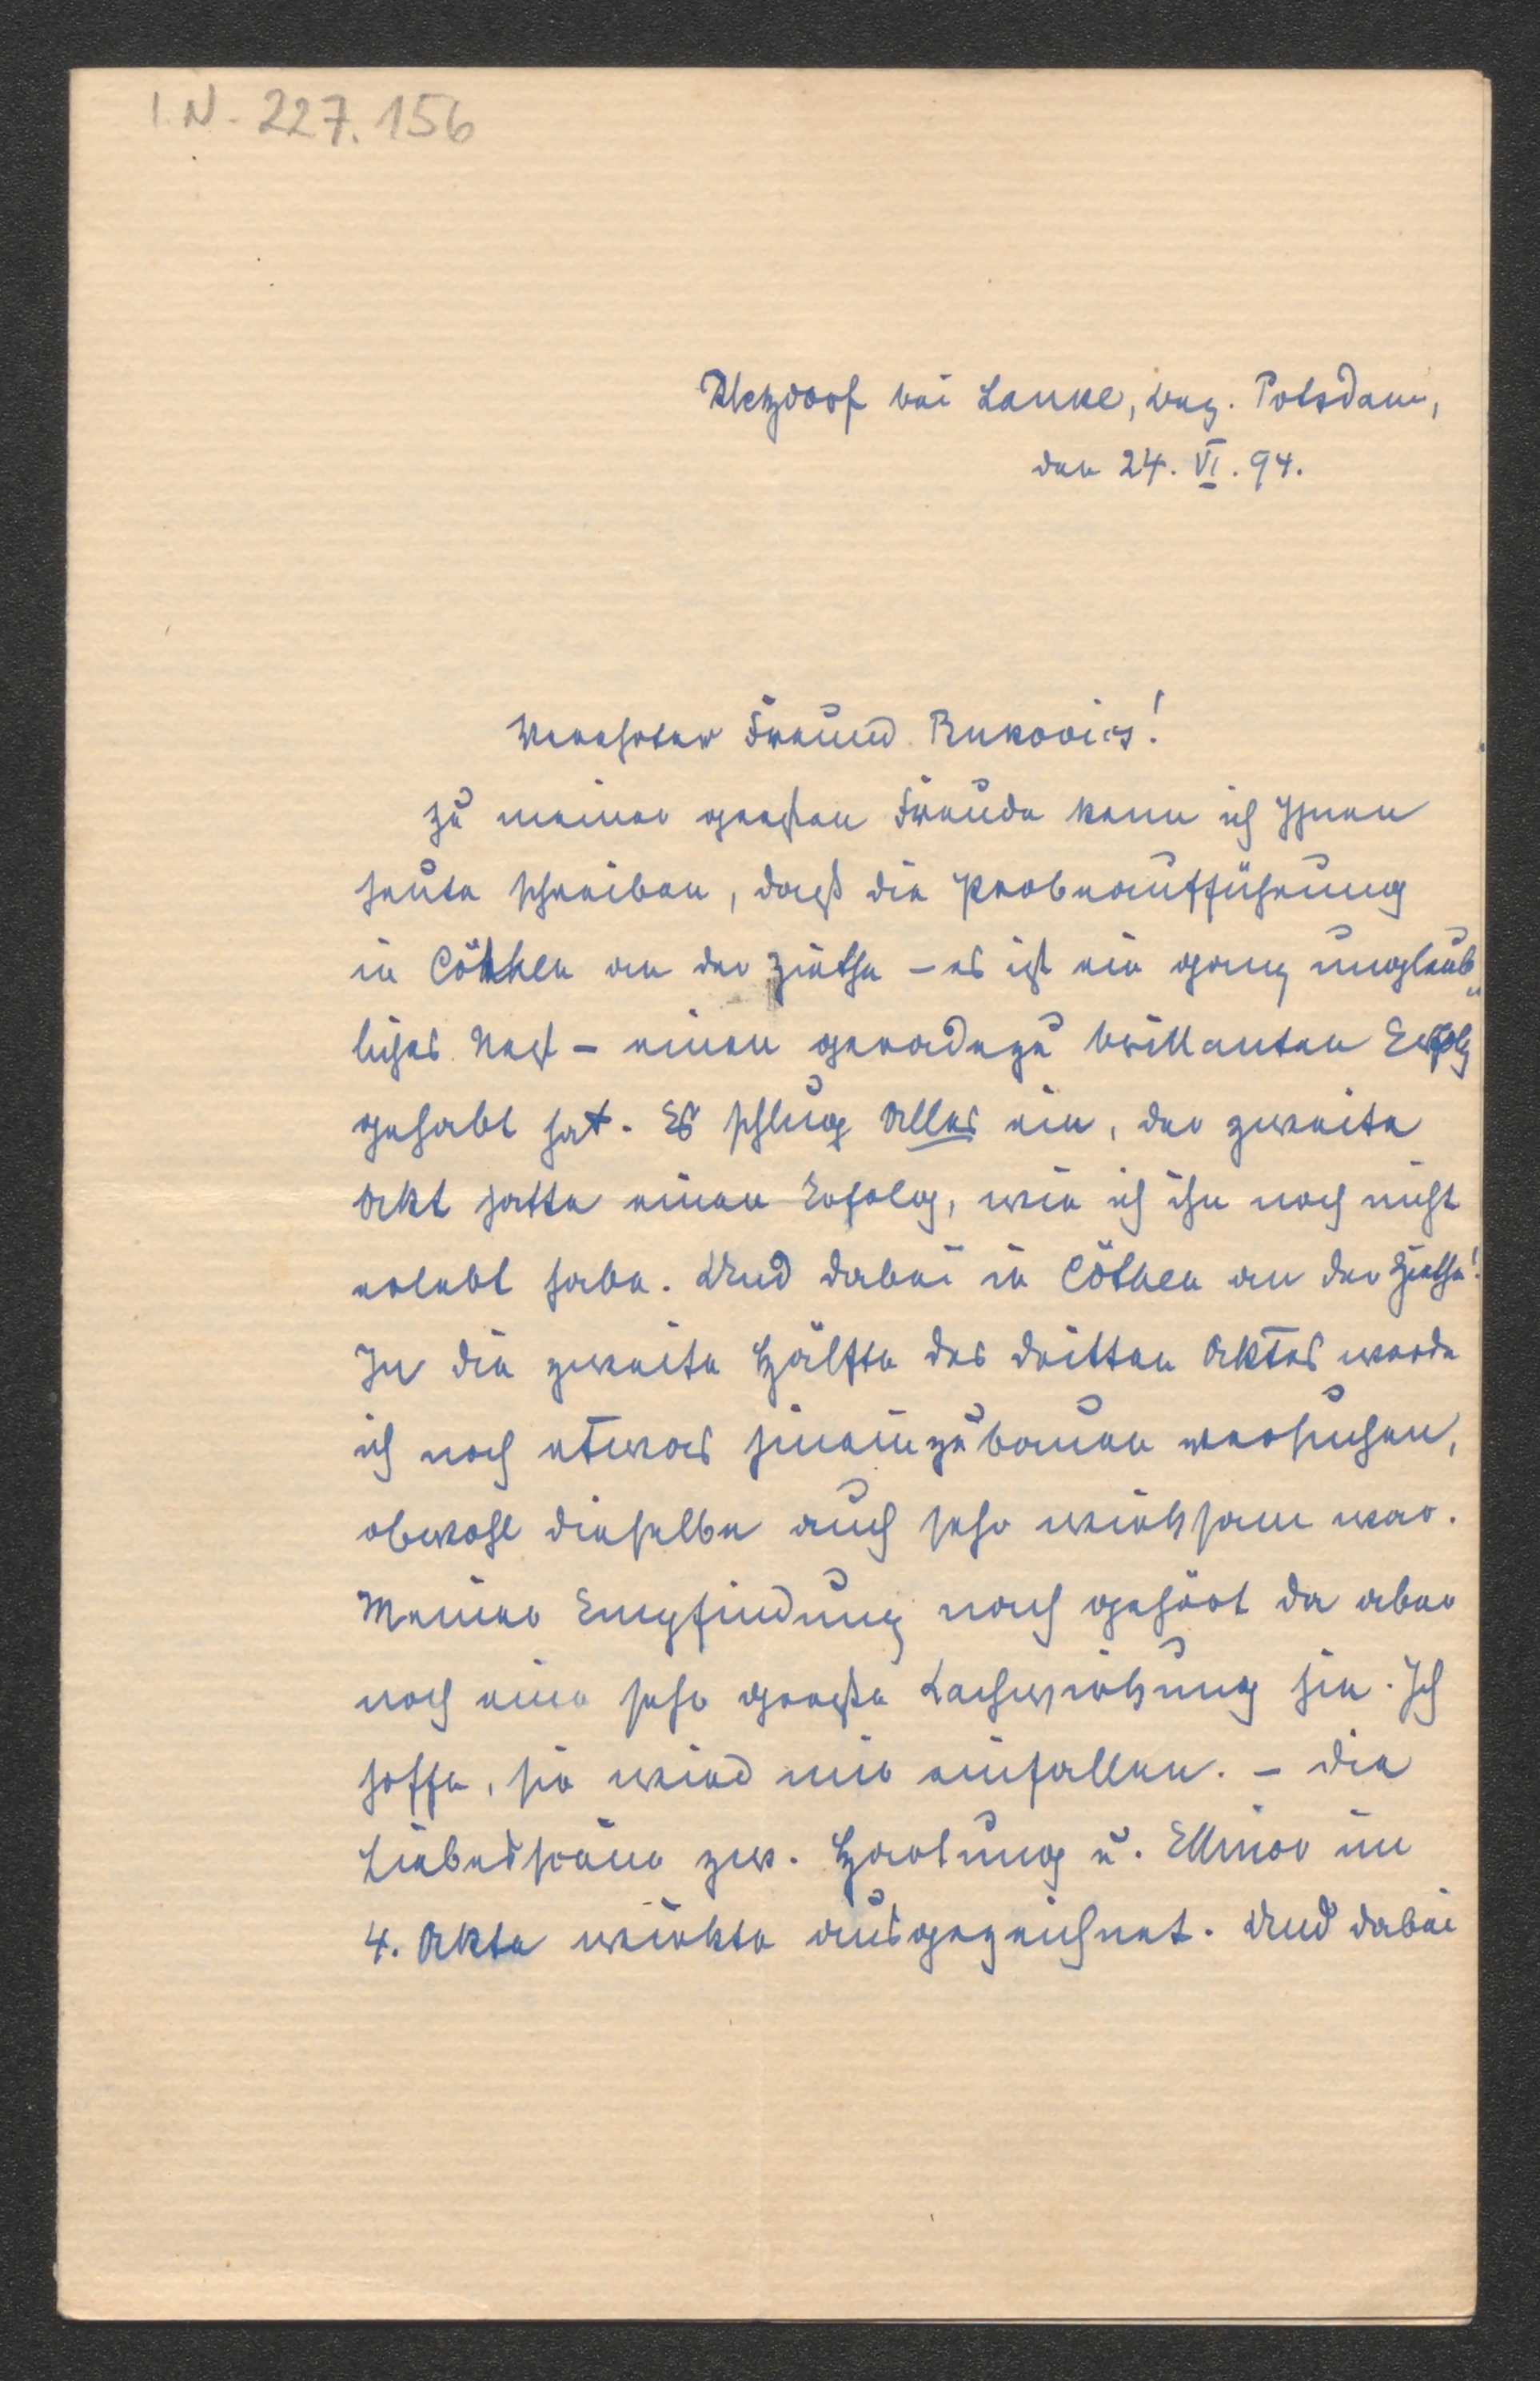 I.N. 227.156
Utzdorf bei Lanke, Bez. Potsdam,
den 24. VI. 94.
Verehrter Freund Bukovics!
Zu meiner großen Freude kann ich Ihnen
heute schreiben, daß die Probeaufführung
in Cöthen an der Ziethe – es ist ein ganz unglaub„
liches Nest – einen geradezu brillanten Erfolg
gehabt hat. Es schlug Alles ein, der zweite
Akt hatte einen Erfolg, wie ich ihn noch nicht
erlebt habe. Und dabei in Cöthen an der Ziethe!
In die zweite Hälfte des dritten Aktes werde
ich noch etwas hineinzubauen versuchen,
obwohl dieselbe auch sehr wirksam war.
Meiner Empfindung nach gehört da aber
noch eine sehr große Lachwirkung hin. Ich
hoffe, sie wird mir einfallen. – Die
Liebesscene zw. Hartung u. Ellinor im
4. Akte wirkte ausgezeichnet. Und dabei